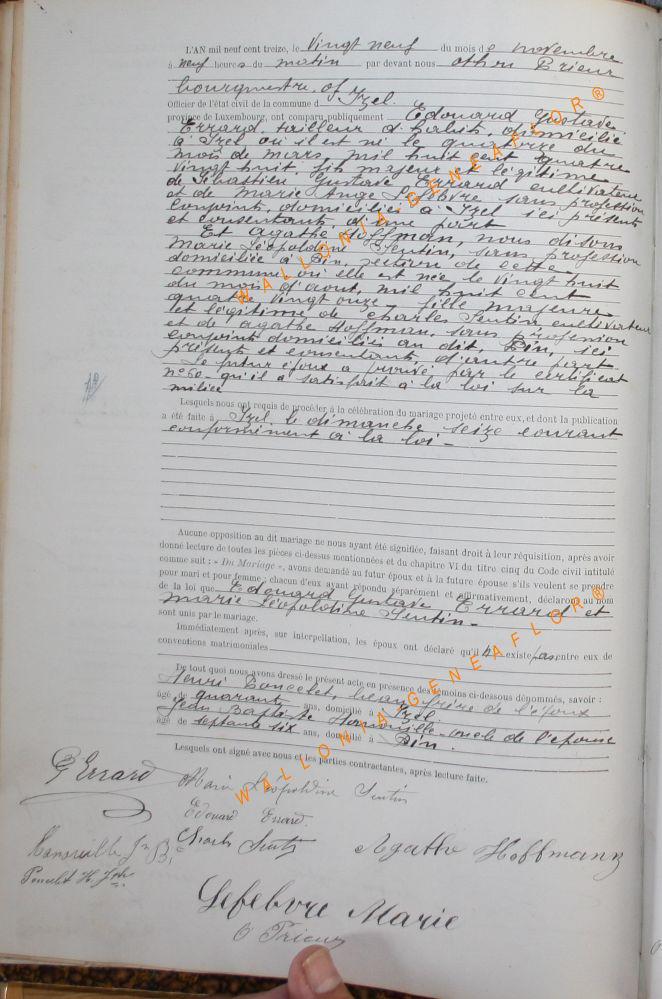 L'AN mil neuf cent treize, le vingt neuf du mois de novembre
à neuf heures du matin par devant nous Othon Prieur
bourgmestre
Officier de l'état civil de la commune d'Izel.
province de Luxembourg, ont comparu publiquement Edouard Gustave
Errard, tailleur d'habits, domicilié
à Izel où il est né le quatorze du
mois de mars, mil huit cent quatre
vingt huit, fils majeur et légitime
de Sébastien Gustave Errard cultivateur
et de Marie Ange Lefebvre sans profession
conjoint domiciliés à Izel ici présents
et consentants, d'une part
Et Agathe Hoffman, nous disons
Marie Léopoldine Sentin, sans profession
domiciliée à Pin, section de cette
commune où elle est née le vingt huit
du mois d'aout, mil huit cent
quatre vingt onze, fille majeure
et légitime de Charles Sentin cultivateur
et de Agathe Hoffman, sans profession
conjoint domiciliés au dit Pin, ici
présents et consentants, d'autre part.
Le futur époux a prouvé par le certificat
n° 60 qu'il a satisfait à la loi sur la
milice
Lesquels nous ont requis de procéder à la célébration du mariage projeté entre eux, et dont la publication
a été faite à Izel le dimanche seize courant
conformément à la loi -
Aucune opposition au dit mariage ne nous ayant été signifiée, faisant droit à leur réquisition, après avoir
donné lecture de toutes les pièces ci-dessus mentionnées et du chapitre VI du titre cinq du Code civil intitulé
comme suit : « Du Mariage », avons demandé au futur époux et à la future épouse s'ils veulent se prendre
pour mari et pour femme ; chacun d'eux ayant répondu séparément et affirmativement, déclarons au nom
de la loi que Edouard Gustave Errard et
Marie Léopoldine Sentin -
sont unis par le mariage.
Immédiatement après, sur interpellation, les époux ont déclaré qu'il n'existe pas entre eux de
conventions matrimoniales
De tout quoi nous avons dressé le présent acte en présence des témoins ci-dessous dénommés, savoir :
Henri Poncelet, beau frère de l'époux
âgé de quarante ans, domicilié à Izel
Jean Baptiste Hansouille oncle de l'épouse
âgé de septante six ans, domicilié à Pin.
Lesquels ont signé avec nous et les parties contractantes, après lecture faite.
G Errard
Marie Léopoldine Sentin
Edouard Errard
Charles Sentin
Agathe Hoffmann
Poncelet H.
Lefebvre Marie
O Prieur
WALLONIA-GENEAFLOR®
WALLONIA-GENEAFLOR®